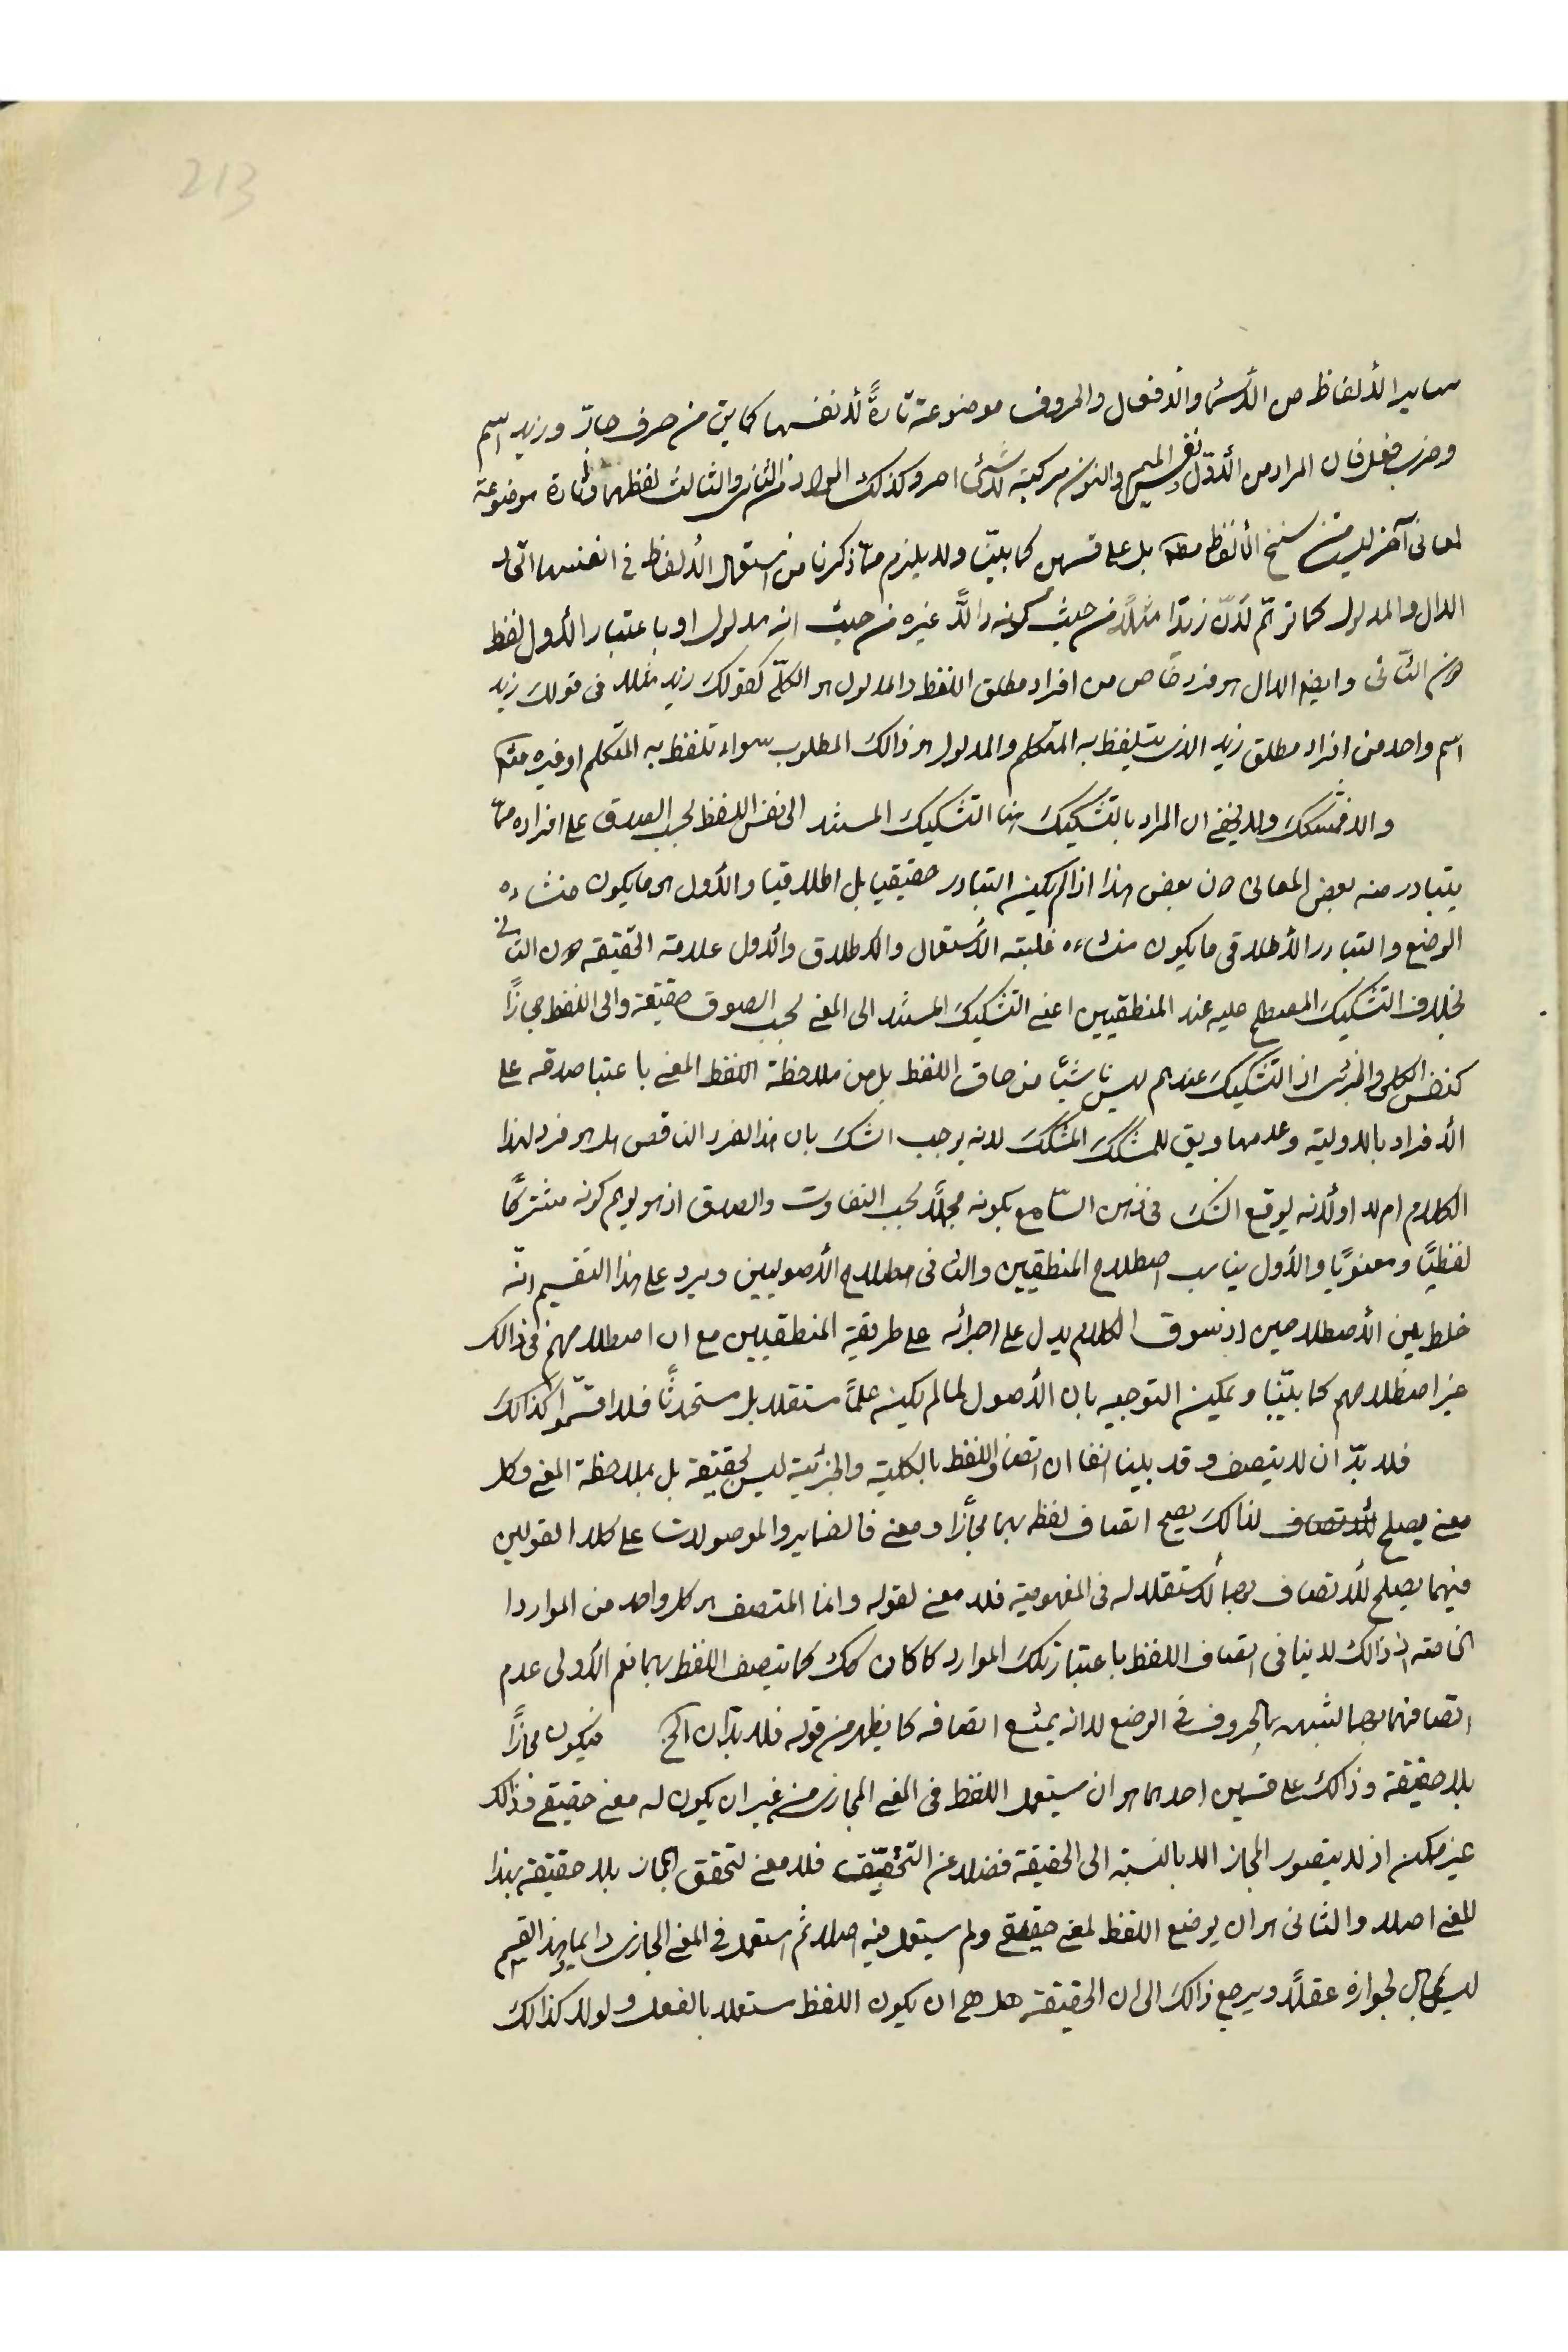 213
ساير الألفاظ من الأسماء والأفعال والحروف موضوعة تارةً لأنفسها كما يق من حرف جارّ وزيد اسم
وضرب فعل فان المراد من الأوّل نفس الميم والنون مركبة لا شئ اخر وكذلك المراد من الثانى والثالث لفظهما وتارة موضوعة
لمعانى آخر ليست من سنخ الألفاظ مطلقا بل على قسمين كما بيّنا ولا يلزم ممّا ذكرنا من استعمال الألفاظ فى انفسها اتحاد
الدال والمدلول كما توهّم لأنّ زيدًا مثلًا من حيث كونه دالًّا غيره من حيث انه مدلول او باعتبار الأول لفظ
دون الثانى وايضا الدال هو فرد خاص من افراد مطلق اللفظ والمدلول هو الكلّى كقولك زيد مثلا فى قولك زيد
اسم واحد من افراد مطلق زيد الذى يتلفظ به المتكلم والمدلول هو ذالك المطلوب سواء تلفظ به المتكلم او غيره
والا فمشكك ولا يخفى ان المراد بالتشكيك هنا التشكيك المستند الى نفس اللفظ بحسب الصدق على افراده ممّا
يتبادر منه بعض المعانى دون بعض هذا اذا لم يكن التبادر حقيقيا بل اطلاقيا والأول هو ما يكون منشاءه
الوضع والتبادر الأطلاقى ما يكون منشاءه غلبته الأستعمال والاطلاق والأول علامة الحقيقه دون الثانى
بخلاف التشكيك المصطلح عليه عند المنطقيين اعنى التشكيك المستند الى المعنى بحسب الصدق حقيقة والى اللفظ مجازًا
كنفس الكلى والجزئى اذ التشكيك عندهم ليس ناشيًا من حاق اللفظ بل من ملاحظة اللفظ المعنى باعتبا صدقه على
الأفراد بالاولية وعدمها ويق للمشكك المشكك لانه يوجب الشك بان هذا الفرد الناقص هل هو فرد لهذا
الكلام ام لا او لأنه يوقع الشك فى ذهن السّامع بكونه مجملًا بحسب التفاوت والصدق اذ هو يوهم كونه مشتركًا
لفظيًا ومعنويًا والأول يناسب اصطلاح المنطقيين والثانى اصطلاح الأصوليين ويرد على هذا التقسيم انّه
خلط بين الأصطلاحين اذ سوق الكلام يدل على اجرائه على طريقية المنطقيين مع ان اصطلاحهم فى ذالك
غير اصطلاحهم كما بيّنا ويمكن التوجيه بان الأصول لما لم يكن علمًا مستقلا بل مستحدثًا فلذا قسّموا كذالك
فلا بدّ ان لا يتصف وقد بينا انفا ان اتصاف اللفظ بالكلية والجزئية ليس بحقيقة بل بملاحظة المعنى وكل
معنى يصلح للأتصاف لذالك يصح اتصاف لفظه بهما مجازًا ومعنى فالضماير والموصولات على كلا القولين
فيهما يصلح للأتصاف بهما لأستقلاله فى المفهومية فلا معنى لقوله وانما المتصف هو كل واحد من الموارد ا
الخاصة اذ ذالك لا ينافى اتصاف اللفظ باعتبار تلك الموارد كما كان كك كما يتصف اللفظ بهما نعم الأولى عدم
اتصافهما بهما لشبهه بالحروف فى الوضع لا انه يمتنع اتصافه كما يظهر من قوله فلا بدّ ان الخ فيكون مجازًا
بلا حقيقة وذالك على قسمين احدهما هو ان يستعمل اللفظ فى المعنى المجازى من غير ان يكون له معنى حقيقى فذالك
غير ممكن اذ لا يتصور المجاز الا بالنسبة الى الحقيقة فضلا عن التحقيق فلا معنى لتحقق المجاز بلا حقيقة بهذا
المعنى اصلا والثانى هو ان يوضع اللفظ لمعنى حقيقى ولم يستعمل فيه اصلا ثم استعمل فى المعنى المجازى دايما وهذا القسم
ليس بمحال لجوازه عقلًا ويرجع ذالك الى ان الحقيقة هل هى ان يكون اللفظ مستعملا بالفعل ولولا كذالك